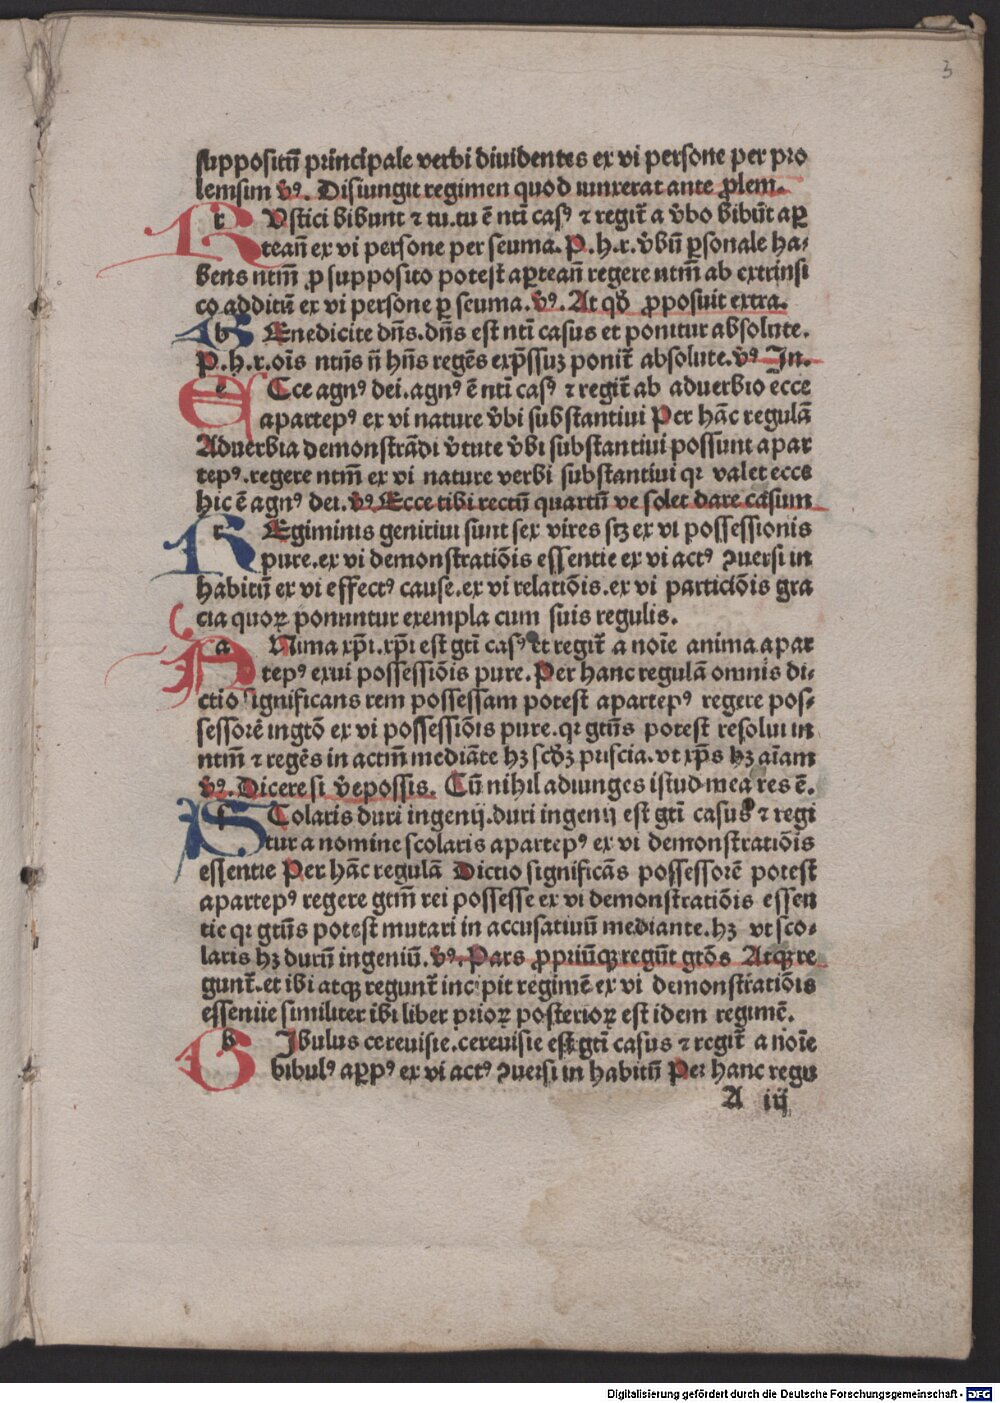 3
suppositū principale verbi diuidentes ex vi persone per pro
lemsim v̄ꝰ. Disiungit regimen quod iunxerat ante ꝓlem.
r Vstici bibunt ⁊ tu.tu ē nti casꝰ ⁊ regiť a v̄bo bibūt aꝑ
teañ ex vi persone per seuma. P.h.r. v̄bū ꝑsonale ha⸗
bens ntm̄ ꝓ supposito potest aꝑteañ regere ntm̄ ab extrinsi
co additū ex vi persone ꝑ seuma. v̄ꝰ. At qđ ꝓposuit extra.
b Enedicite dn̄s.dn̄s est nti casus et ponitur absolute.
P.h.r.oīs ntn̄s n̄ hn̄s regēs exp̄ssuꝫ poniť absolute. v̄ꝰ In.
e Cce agnꝰ dei.agnꝰ ē nti casꝰ ⁊ regiť ab aduerbio ecce
apartepꝰ ex vi nature v̄bi substantiui Per hāc regulā
Aduerbia demonstrādi v̄tute v̄bi substantiui possunt apar
tepꝰ.regere ntm̄ ex vi nature verbi substantiui qꝛ valet ecce
hic ē agnꝰ dei. v̄ꝰ Ecce tibi rectū quartū ve solet dare casum
r Egiminis genitiui sunt sex vires stꝫ ex vi possessionis
pure.ex vi demonstratiōis essentie ex vi actꝰ ꝯuersi in
habitū ex vi effectꝰ cause.ex vi relatiōis.ex vi particiōis gra
cia quoꝝ ponuntur exempla cum suis regulis.
a Nima xp̄i.xp̄i est gti casꝰ et regiť a noīe anima apar
tepꝰ exui possessiōis pure. Per hanc regulā omnis di⸗
ctio significans rem possessam potest apartepꝰ regere pos⸗
sessorē in gtō ex vi possessiōis pure.qꝛ gtn̄s potest resolui in
ntm̄ ⁊ regēs in actm̄ mediāte hꝫ scd̄ꝫ priscia.vt xp̄s hꝫ aīam
v̄ꝰ. Dicere si v̄e possis. Cū nihil adiunges istud mea res ē.
s Colaris duri ingenij.duri ingenij est gti casus ⁊ regi
tur a nomine scolaris apartepꝰ ex vi demonstratiōis
essentie Per hāc regulā Dictio significās possessorē potest
apartepꝰ regere gtm̄ rei possesse ex vi demonstratiōis essen
tie qꝛ gtn̄s potest mutari in accusatiuū mediante.hꝫ vt sco⸗
laris hꝫ durū ingeniū. v̄ꝰ. Pars ꝓpriūqꝫ regūt gtōs Atqꝫ re
gunť.et ibi atqꝫ regunť incipit regimē ex vi demonstratiōis
essentie similiter ibi liber prioꝝ posterioꝝ est idem regimē.
b Ibulus cereuisie.cereuisie est gti casus ⁊ regiť a noīe
bibulꝰ aꝑpꝰ ex vi actꝰ ꝯuersi in habitū Per hanc regu
A iij
Digitalisierung gefördert durch die Deutsche Forschungsgemeinschaft - DFG